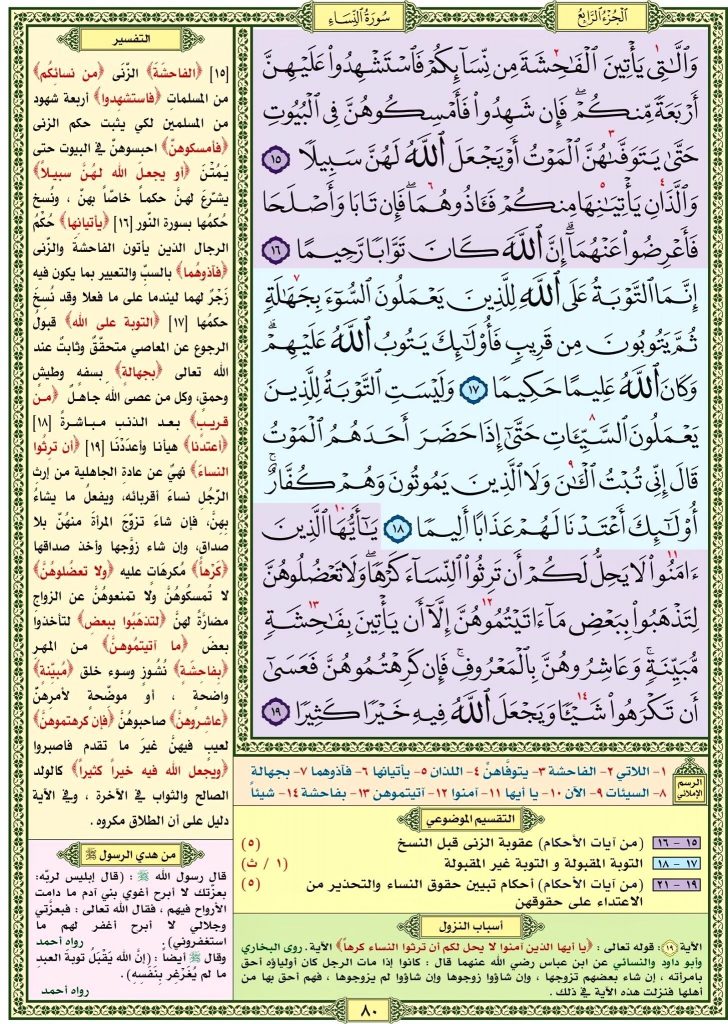 الجزء الرابع
سورة النساء
وَالَّٰتِي يَأْتِينَ الْفَٰحِشَةَ مِن نِّسَآئِكُمْ فَاسْتَشْهِدُوا عَلَيْهِنَّ
أَرْبَعَةً مِّنكُمْ ۖ فَإِن شَهِدُوا فَأَمْسِكُوهُنَّ فِي الْبُيُوتِ
حَتَّىٰ يَتَوَفَّىٰهُنَّ الْمَوْتُ أَوْ يَجْعَلَ اللَّهُ لَهُنَّ سَبِيلًا ١٥
وَالَّذَانِ يَأْتِيَٰنِهَا مِنكُمْ فَـَٔاذُوهُمَا ۖ فَإِن تَابَا وَأَصْلَحَا
فَأَعْرِضُوا عَنْهُمَا ۗ إِنَّ اللَّهَ كَانَ تَوَّابًا رَّحِيمًا ١٦
إِنَّمَا التَّوْبَةُ عَلَى اللَّهِ لِلَّذِينَ يَعْمَلُونَ السُّوٓءَ بِجَهَٰلَةٍ
ثُمَّ يَتُوبُونَ مِن قَرِيبٍ فَأُولَٰٓئِكَ يَتُوبُ اللَّهُ عَلَيْهِمْ ۗ
وَكَانَ اللَّهُ عَلِيمًا حَكِيمًا ١٧ وَلَيْسَتِ التَّوْبَةُ لِلَّذِينَ
يَعْمَلُونَ السَّيِّـَٔاتِ حَتَّىٰٓ إِذَا حَضَرَ أَحَدَهُمُ الْمَوْتُ
قَالَ إِنِّي تُبْتُ الْـَٰٔنَ وَلَا الَّذِينَ يَمُوتُونَ وَهُمْ كُفَّارٌ ۚ
أُولَٰٓئِكَ أَعْتَدْنَا لَهُمْ عَذَابًا أَلِيمًا ١٨ يَٰٓأَيُّهَا الَّذِينَ
ءَامَنُوا لَا يَحِلُّ لَكُمْ أَن تَرِثُوا النِّسَآءَ كَرْهًا ۖ وَلَا تَعْضُلُوهُنَّ
لِتَذْهَبُوا بِبَعْضِ مَآ ءَاتَيْتُمُوهُنَّ إِلَّآ أَن يَأْتِينَ بِفَٰحِشَةٍ
مُّبَيِّنَةٍ ۚ وَعَاشِرُوهُنَّ بِالْمَعْرُوفِ ۚ فَإِن كَرِهْتُمُوهُنَّ فَعَسَىٰٓ
أَن تَكْرَهُوا شَيْـًٔا وَيَجْعَلَ اللَّهُ فِيهِ خَيْرًا كَثِيرًا ١٩
الرسم الإملائي
١- اللاتي ٢- الفاحشة ٣- يتوفَّاهنَّ ٤- اللذان ٥- يأتيانها ٦- فآذوهما ٧- بجهالة
٨- السيئات ٩- الآن ١٠- يا أيها ١١- آمنوا ١٢- آتيتموهن ١٣- بفاحشة ١٤- شيئاً
التقسيم الموضوعي
١٥ - ١٦ (من آيات الأحكام) عقوبة الزنى قبل النسخ (٥)
١٧ - ١٨ التوبة المقبولة و التوبة غير المقبولة (١ / ث)
١٩ - ٢١ (من آيات الأحكام) أحكام تبيين حقوق النساء والتحذير من (٥)
الاعتداء على حقوقهن
أسباب النزول
الآية ١٩: قوله تعالى : ﴿يا أيها الذين آمنوا لا يحل لكم أن ترثوا النساء كرهاً﴾ الآية. روى البخاري
وأبو داود والنسائي عن ابن عباس رضي الله عنهما قال : كانوا إذا مات الرجل كان أولياؤه أحق
بامرأته ، إن شاء بعضهم تزوجها ، وإن شاؤوا زوجوها وإن شاؤوا لم يزوجوها ، فهم أحق بها من
أهلها فنزلت هذه الآية في ذلك .
التفسير
[١٥] ﴿الفاحشةَ﴾ الزِّنَى ﴿من نسائِكُم﴾
من المسلمات ﴿فاستشهدوا﴾ أربعة شهود
من المسلمين لكي يثبت حكم الزنى
﴿فأمسكوهنَّ﴾ احبسوهنَّ في البيوت حتى
يَمُتْنَ ﴿أو يجعل الله لهُنَّ سبيلاً﴾
يشرِّعَ لهنَّ حكماً خاصّاً بهنّ ، ونُسخ
حُكمُها بسورة النّور [١٦] ﴿يأتيانها﴾ حُكْمُ
الرجال الذين يأتون الفاحشةَ والزِّنى
﴿فآذوهُما﴾ بالسبِّ والتعيير بما يكون فيه
زَجْرٌ لهما ليندما على ما فعلا وقد نُسخَ
حكمُها [١٧] ﴿التوبة على الله﴾ قبولُ
الرجوع عن المعاصي متحقِّقٌ وثابتٌ عند
الله تعالى ﴿بجهالةٍ﴾ بسفهٍ وطيشٍ
وحمقٍ، وكل من عصى الله جاهلٌ ﴿من
قريبٍ﴾ بعد الذنب مباشرةً [١٨]
﴿أعتدنا﴾ هيأنا وأعدَدْنَا [١٩] ﴿أن ترثُوا
النساءَ﴾ نهيٌ عن عادة الجاهلية من إرث
الرَّجُل نساءَ أقربائه، ويفعلُ ما يشاءُ
بِهِنَّ، فإن شاء تزوّجَ المرأةَ منهُنَّ بلا
صداقٍ، وإن شاء زوَّجها وأخذ صداقها
﴿كَرْهاً﴾ مُكرهاتٍ عليه ﴿ولا تعضُلوهُنَّ﴾
لا تُمسكُوهُنَّ ولا تمنعوهُنَّ عن الزواجِ
مضارَّةً لهنَّ ﴿لتذهَبُوا ببعضِ﴾ لتأخذوا
بعضَ ﴿ما آتيتموهُنَّ﴾ من المهر
﴿بفاحشةٍ﴾ نُشوزٍ وسوء خلق ﴿مُبيِّنة﴾
واضحة ، أو موضِّحةٍ لأمرهنَّ
﴿عاشِروهنَّ﴾ صاحبوهُنَّ ﴿فإن كرهتموهنَّ﴾
لعيبٍ فيهنَّ غيرَ ما تقدم فاصبروا
﴿ويجعل الله فيه خيراً كثيراً﴾ كالولد
الصالح والثواب في الآخرة ، وفي الآية
دليل على أن الطلاق مكروه .
من هدي الرسول ﷺ
قال رسول الله ﷺ : (قال إبليس لربِّه:
بعزّتك لا أبرح أغوي بني آدم ما دامت
الأرواح فيهم ، فقال الله تعالى : فبعزَّتي
وجلالي لا أبرح أغفر لهم ما
استغفروني) رواه أحمد
وقال ﷺ أيضاً : (إنَّ الله يَقْبَلُ توبةَ العبدِ
ما لم يُغَرْغِر بِنَفْسِهِ) .
رواه أحمد
٨٠